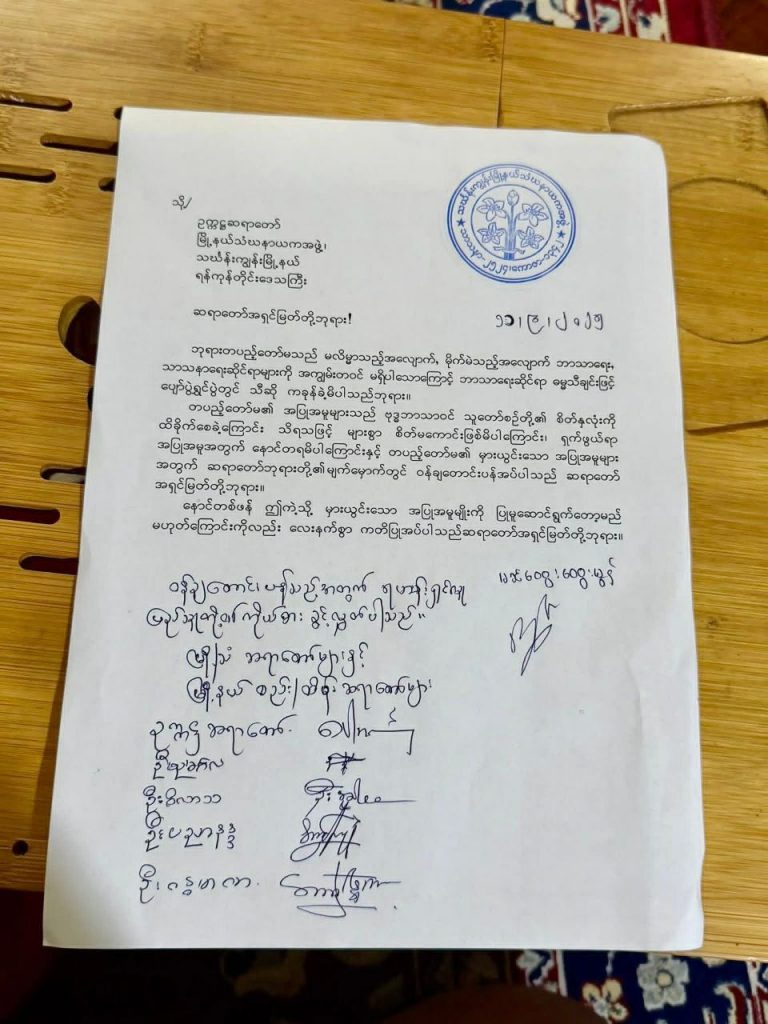 သင်္ဃန်းကျွန်းမြို့နယ်သံဃနာယကအဖွဲ့
သို့/
ဥက္ကဋ္ဌဆရာတော်
မြို့နယ်သံဃနာယကအဖွဲ့၊
သင်္ဃန်းကျွန်းမြို့နယ်
ရန်ကုန်တိုင်းဒေသကြီး
ဆရာတော်အရှင်မြတ်တို့ဘုရား!
ဘုရားတပည့်တော်မသည် မလိမ္မာသည့်အလျောက်, မိုက်မဲသည့်အလျောက် ဘာသာရေး,
သာသနာရေးဆိုင်ရာများကို အကျွမ်းတဝင် မရှိပါသောကြောင့် ဘာသာရေးဆိုင်ရာ ဓမ္မသီချင်းဖြင့်
ပျော်ပွဲရွှင်ပွဲတွင် သီဆို ကခုန်ခဲ့မိပါသည်ဘုရား။
တပည့်တော်မ၏ အပြုအမူများသည် ဗုဒ္ဓဘာသာဝင် သူတော်စဉ်တို့၏ စိတ်နှလုံးကို
ထိခိုက်စေခဲ့ကြောင်း သိရသဖြင့် များစွာ စိတ်မကောင်းဖြစ်မိပါကြောင်း၊ ရှက်ဖွယ်ရာ
အပြုအမူအတွက် နောင်တရမိပါကြောင်းနှင့် တပည့်တော်မ၏ မှားယွင်းသော အပြုအမူများ
အတွက် ဆရာတော်ဘုရားတို့၏မျက်မှောက်တွင် ဝန်ချတောင်းပန်အပ်ပါသည် ဆရာတော်
အရှင်မြတ်တို့ဘုရား။
နောင်တစ်ဖန် ဤကဲ့သို့ မှားယွင်းသော အပြုအမူမျိုးကို ပြုမူဆောင်ရွက်တော့မည်
မဟုတ်ကြောင်းကိုလည်း လေးနက်စွာ ကတိပြုအပ်ပါသည်ဆရာတော်အရှင်မြတ်တို့ဘုရား။
ဝန်ချတောင်းပန်သည့်အတွက် ရဟန်းရှင်လူ
ပြည်သူတို့၏ကိုယ်စား ခွင့်လွှတ်ပါသည်။
မြို့သံ ဆရာတော်များနှင့်
မြို့နယ် စည်း/ထိန်း ဆရာတော်များ
ဥက္ကဋ္ဌ ဆရာတော်
ဦးဝိလာသ
ဦးပညာနန္ဒ